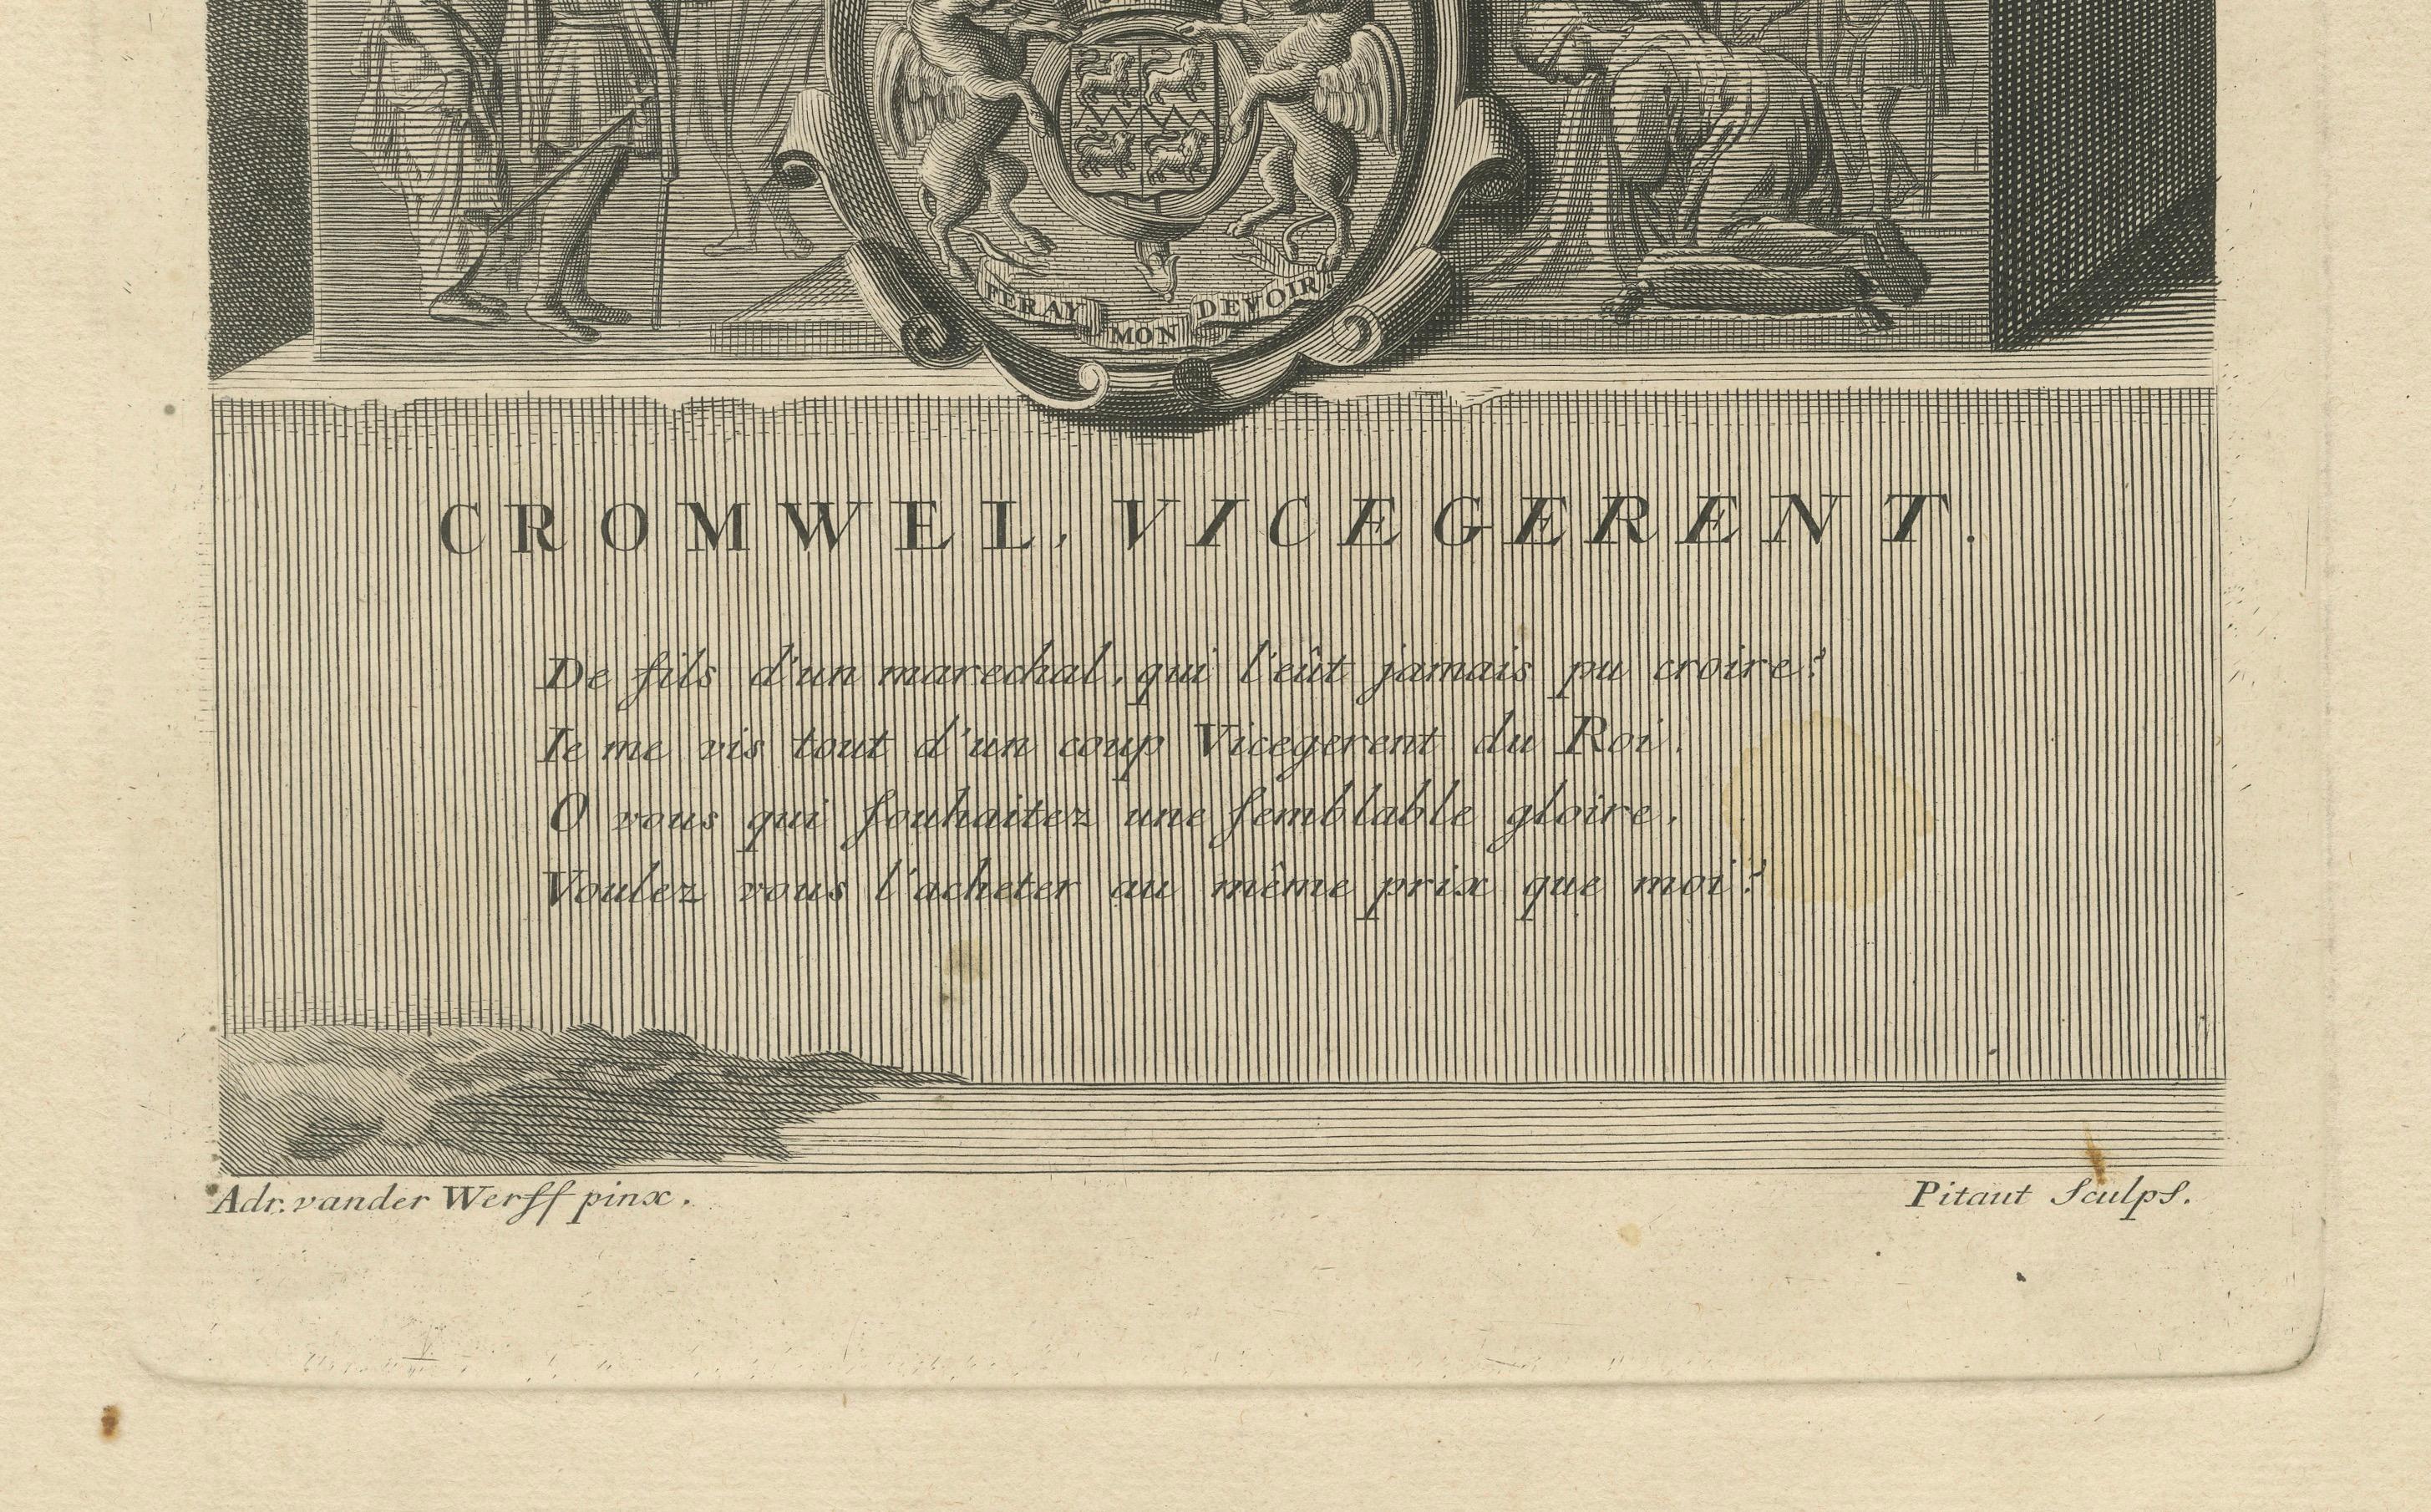 FERAY MON DEVOIR
CROMWEL, VICEGERENT.
De fils d'un marechal, qui l'eût jamais pu croire?
Ie me vis tout d'un coup Vicegerent du Roi.
O vous qui ſouhaitez une ſemblable gloire,
Voulez vous l'acheter au même prix que moi?
Adr. vander Werff pinx.
Pitaut Sculpſ.